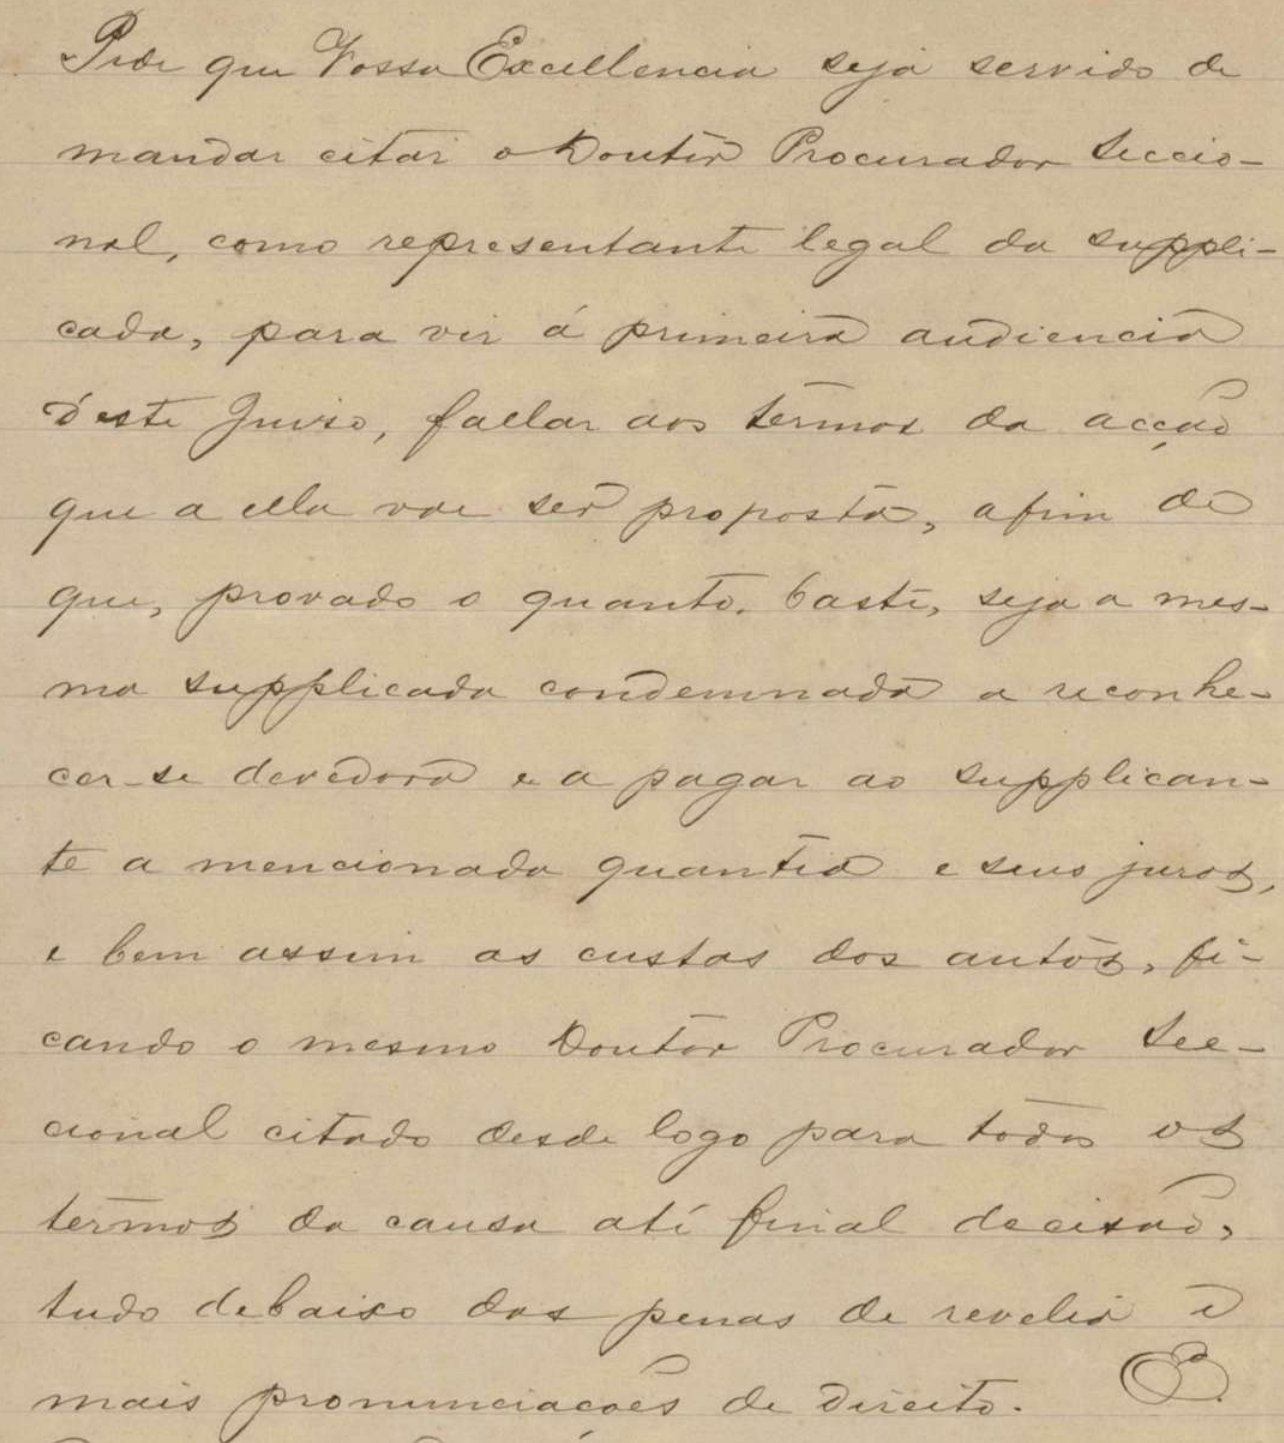 Pede que Vossa Excellencia seja servido de
mandar citar o Doutor Procurador Seccio-
nal, como representante legal da suppli-
cada, para vir á primeira audiencia
deste Juiso, fallar aos termos da acção
que a ella vae ser proposta, afim de
que, provado o quanto baste, seja a mes-
ma supplicada condemnada a reconhe-
cer-se devedora e a pagar ao supplican-
te a mencionada quantia e seus juros,
e bem assim as custas dos autos, fi-
cando o mesmo Doutor Procurador Sec-
cional citado desde logo para todos os
termos da causa até final decisão,
tudo debaixo das penas de revelia e
mais pronunciações de direito. E.